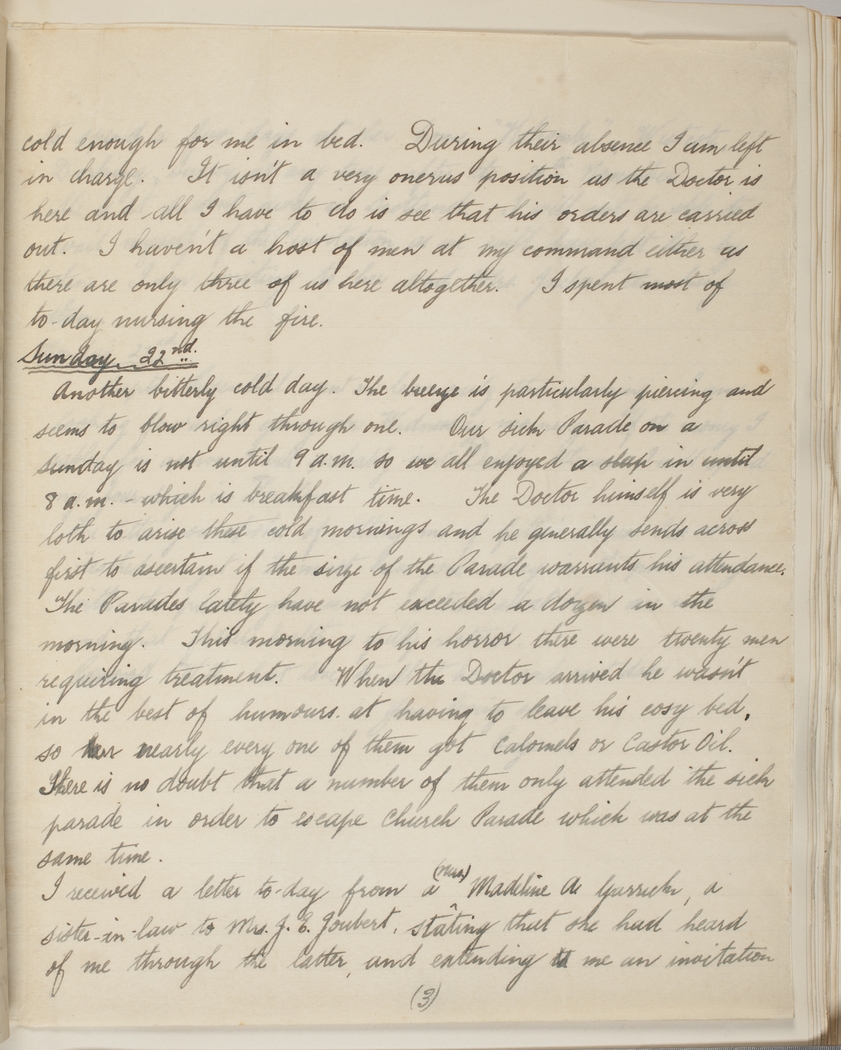 cold enough for me in bed. During their absence I am left
in charge. It isn't a very onerus position as the Doctor is
here and all I have to do is see that his orders are carried
out. I haven't a host of men at my command either as
there are only three of us here altogether. I spent most of
to-day nursing the fire.
Sunday. 22nd.
Another bitterly cold day. The breeze is particularly piercing and
seems to blow right through one. Our sick Parade on a
Sunday is not until 9 a.m. so we all enjoyed a sleep in until
8 a.m. - which is breakfast time. The Doctor himself is very
loth to arise these cold mornings and he generally sends across
first to ascertain if the size of the Parade warrants his attendance.
The Parades lately have not exceeded a dozen in the
morning. This morning to his horror there were twenty men
requiring treatment. When the Doctor arrived he wasn't
in the best of humours. at having to leave his cosy bed,
so nearly every one of them got Calomels or Castor Oil.
There is no doubt that a number of them only attended the sick
parade in order to escape Church Parade which was at the
same time.
(Mrs)
I received a letter to-day from a Madeline A. Garrick, a
sister-in-law to Mrs. J. E. Joubert, stating that she had heard
of me through the latter, and extending to me an invitation
(3)